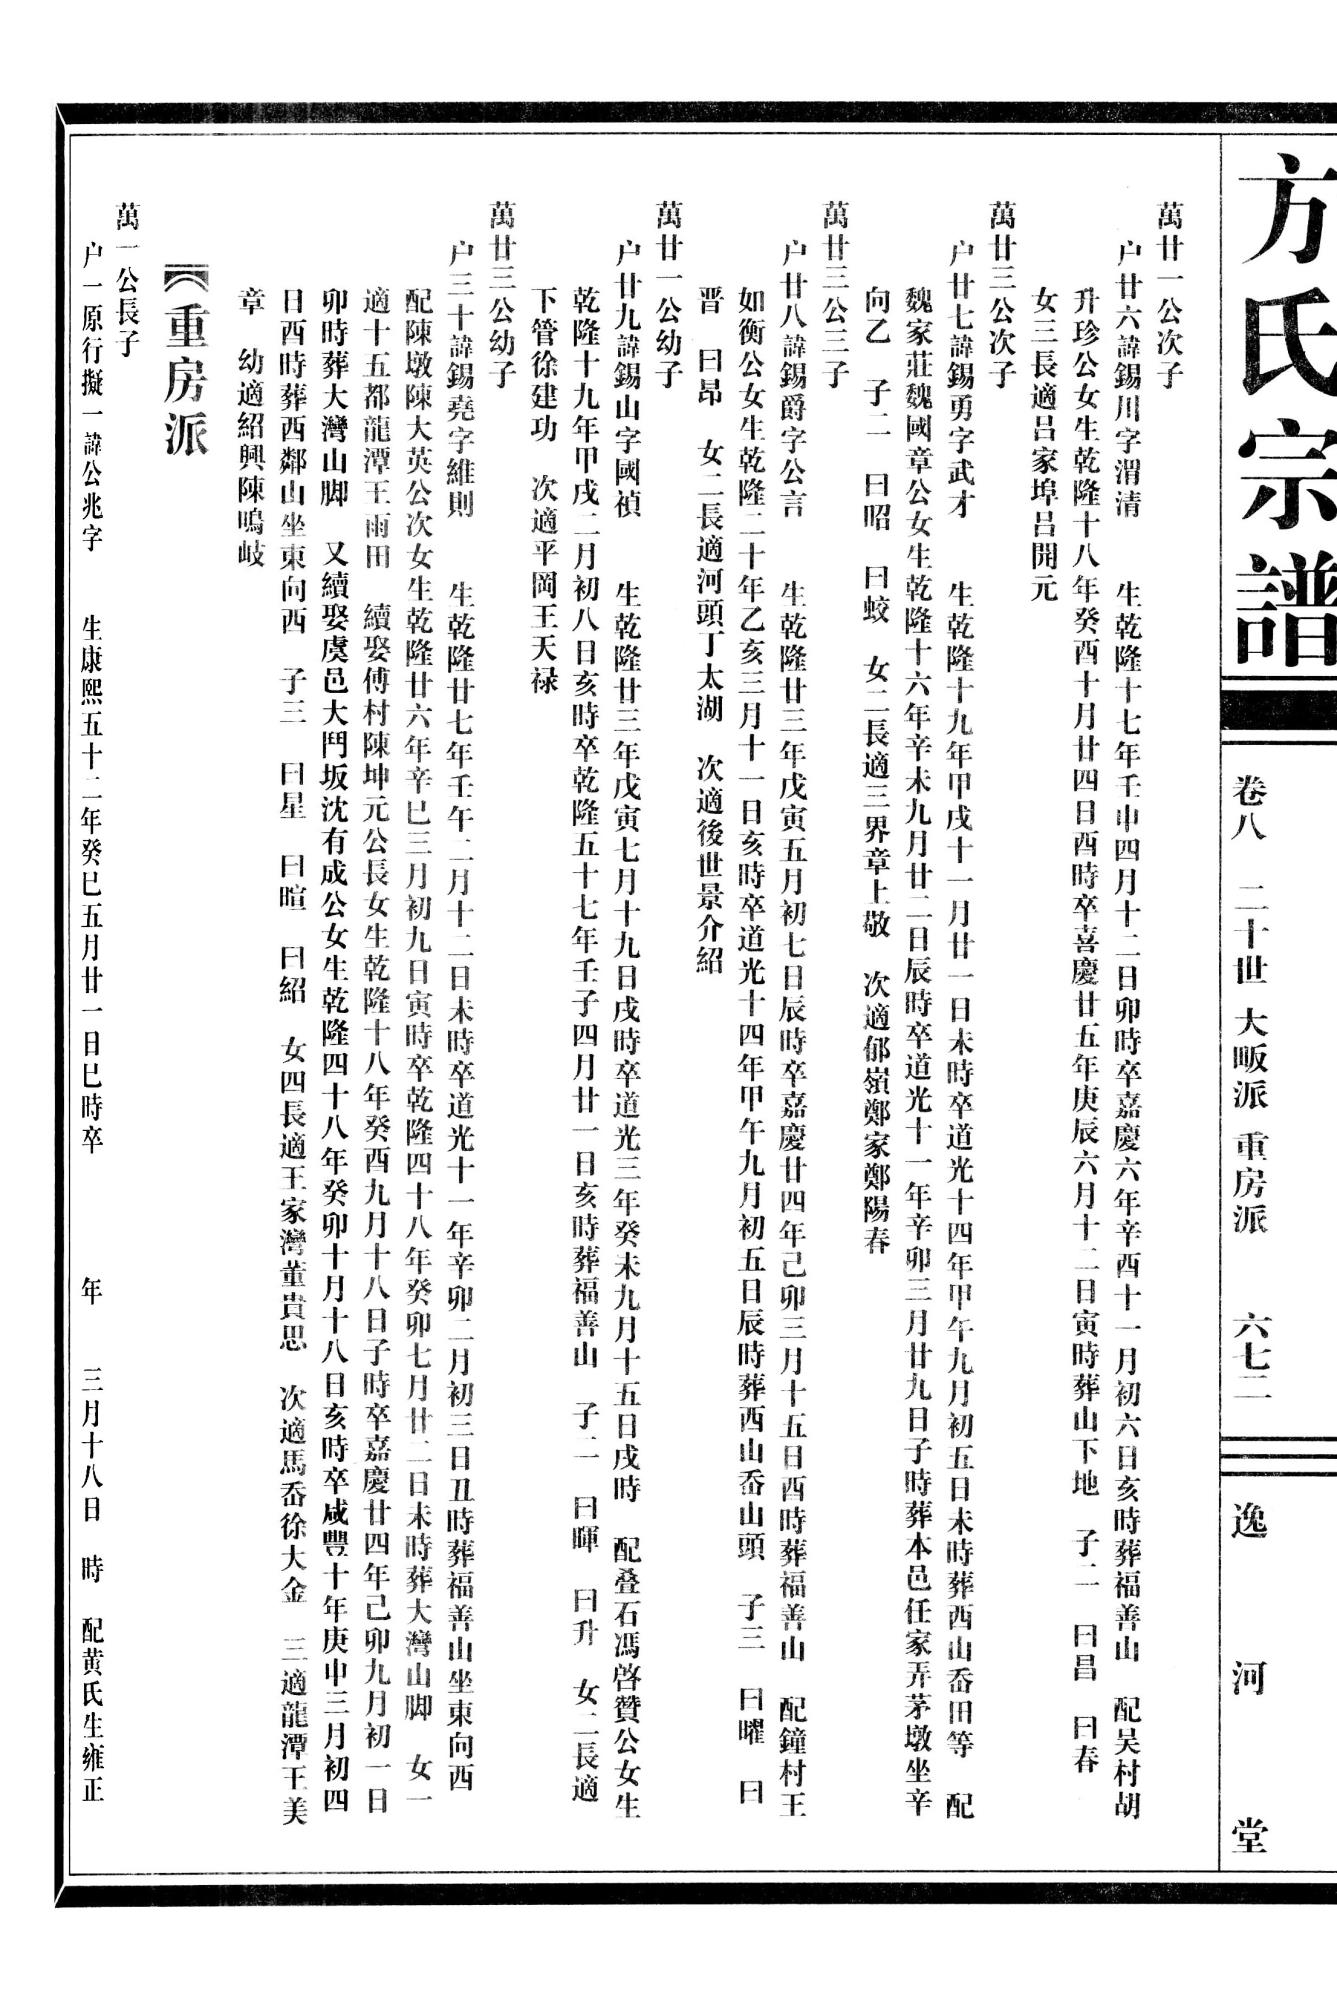 方氏宗譜
卷八 二十世 大畈派 重房派 六七二
逸河堂
萬廿一公次子
户廿六諱錫川字渭清 生乾隆十七年壬申四月十二日卯時卒嘉慶六年辛酉十一月初六日亥時葬福善山 配吴村胡
升珍公女生乾隆十八年癸酉十月廿四日酉時卒喜慶廿五年庚辰六月十二日寅時葬山下地 子二 曰昌 曰春
女三長適吕家埠吕開元
萬廿三公次子
户廿七諱錫勇字武才 生乾隆十九年甲戌十一月廿一日未時卒道光十四年甲午九月初五日未時葬西山岙田等 配
魏家莊魏國章公女生乾隆十六年辛未九月廿二日辰時卒道光十一年辛卯三月廿九日子時葬本邑任家弄茅墩坐辛
向乙 子二 曰昭 曰蛟 女二長適三界章上敬 次適郁嶺鄭家鄭陽春
萬廿三公三子
户廿八諱錫爵字公言 生乾隆廿三年戊寅五月初七日辰時卒嘉慶廿四年己卯三月十五日酉時葬福善山 配鐘村王
如衡公女生乾隆二十年乙亥三月十一日亥時卒道光十四年甲午九月初五日辰時葬西山岙山頭 子三 曰曜 曰
晋 曰昂 女二長適河頭丁太湖 次適後世景介紹
萬廿一公幼子
户廿九諱錫山字國禎 生乾隆廿三年戊寅七月十九日戌時卒道光三年癸未九月十五日戌時 配叠石馮啓贊公女生
乾隆十九年甲戌二月初八日亥時卒乾隆五十七年壬子四月廿一日亥時葬福善山 子二 曰暉 曰升 女二長適
下管徐建功 次適平岡王天禄
萬廿三公幼子
户三十諱錫堯字維則 生乾隆廿七年壬午二月十二日未時卒道光十一年辛卯二月初三日丑時葬福善山坐東向西
配陳墩陳大英公次女生乾隆廿六年辛巳三月初九日寅時卒乾隆四十八年癸卯七月廿二日未時葬大灣山脚 女一
適十五都龍潭王雨田 續娶傅村陳坤元公長女生乾隆十八年癸酉九月十八日子時卒嘉慶廿四年己卯九月初一日
卯時葬大灣山脚 又續娶虞邑大門坂沈有成公女生乾隆四十八年癸卯十月十八日亥時卒咸豐十年庚申三月初四
日酉時葬西鄰山坐東向西 子三 曰星 曰暄 曰紹 女四長適王家灣董貴思 次適馬岙徐大金 三適龍潭王美
章 幼適紹興陳鳴岐
重房派
萬一公長子
户一原行擬一諱公兆字 生康熙五十二年癸巳五月廿一日巳時卒 年 三月十八日 時 配黄氏生雍正